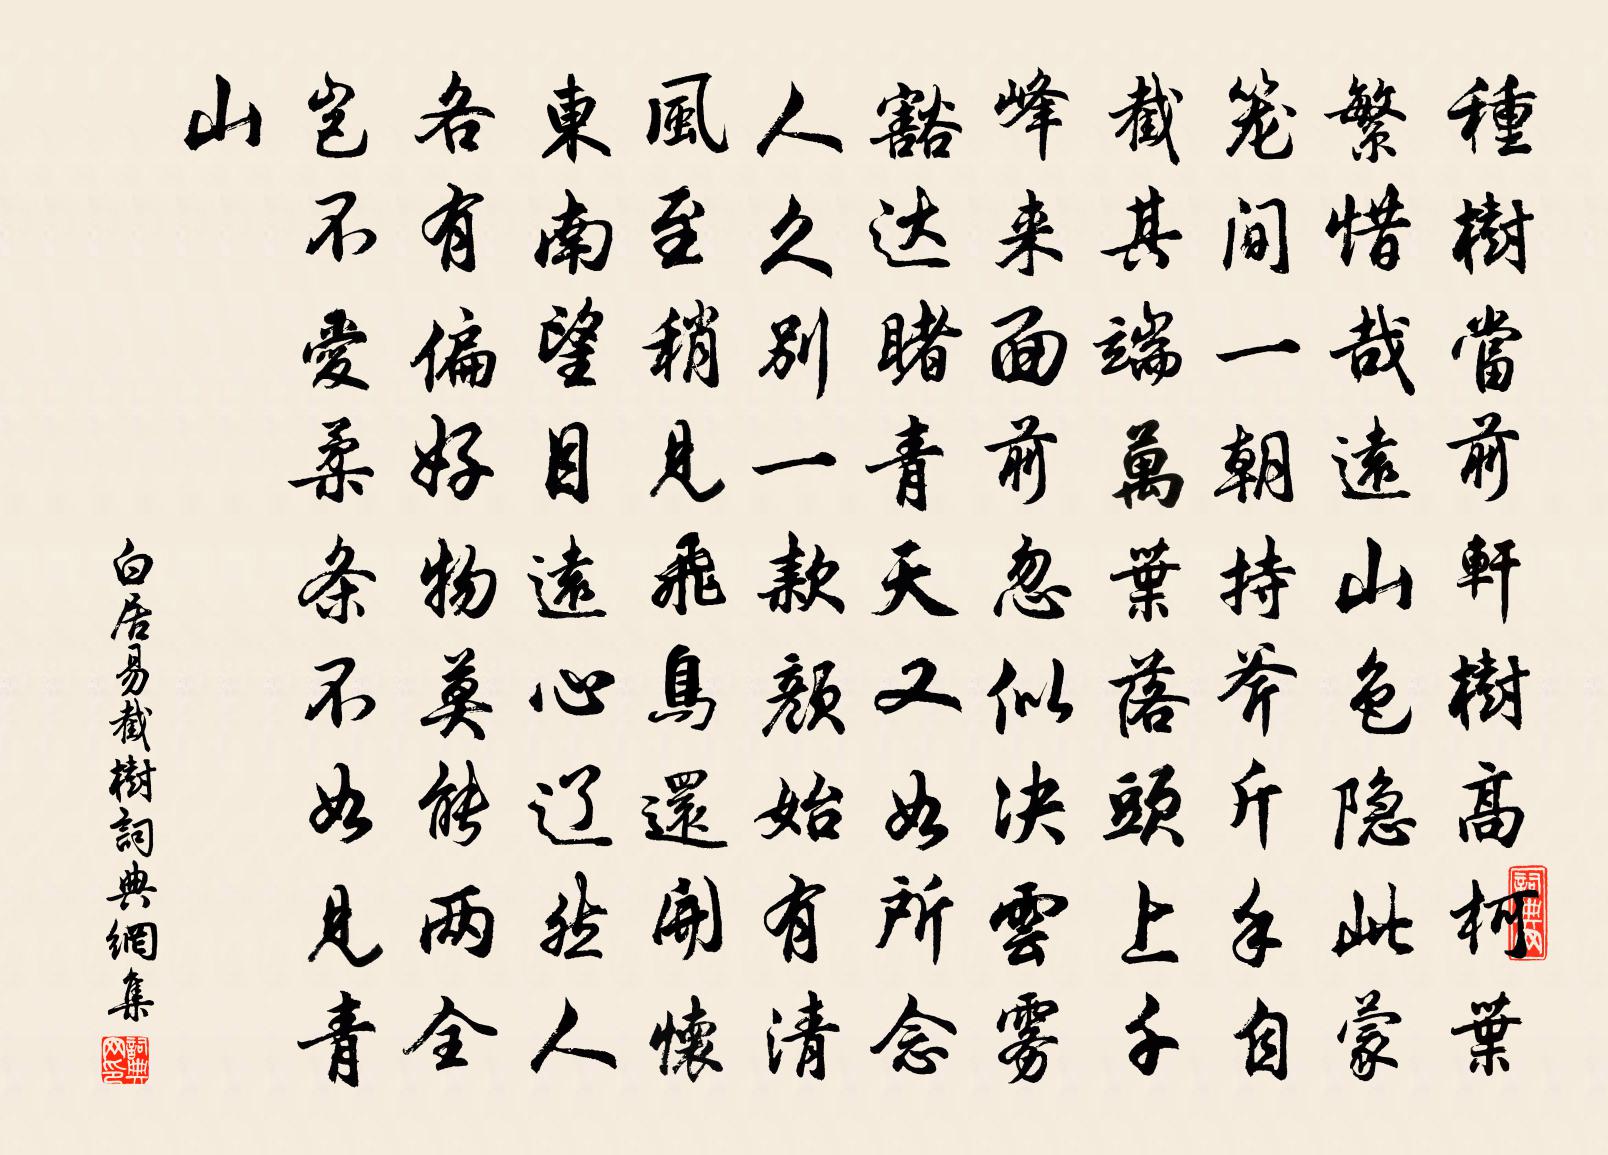 種樹當前軒樹高柯葉
繁惜哉遠山色隐此蒙
笼间一朝持斧斤手自
截其端萬葉落頭上千
峰来面前忽似决雲雾
豁达睹青天又如所念
人久别一款顏始有清
風至稍见飛鳥還開懷
東南望目遠心辽然人
各有偏好物莫能两全
岂不愛柔条不如见青
山
白居易截樹詞典網集